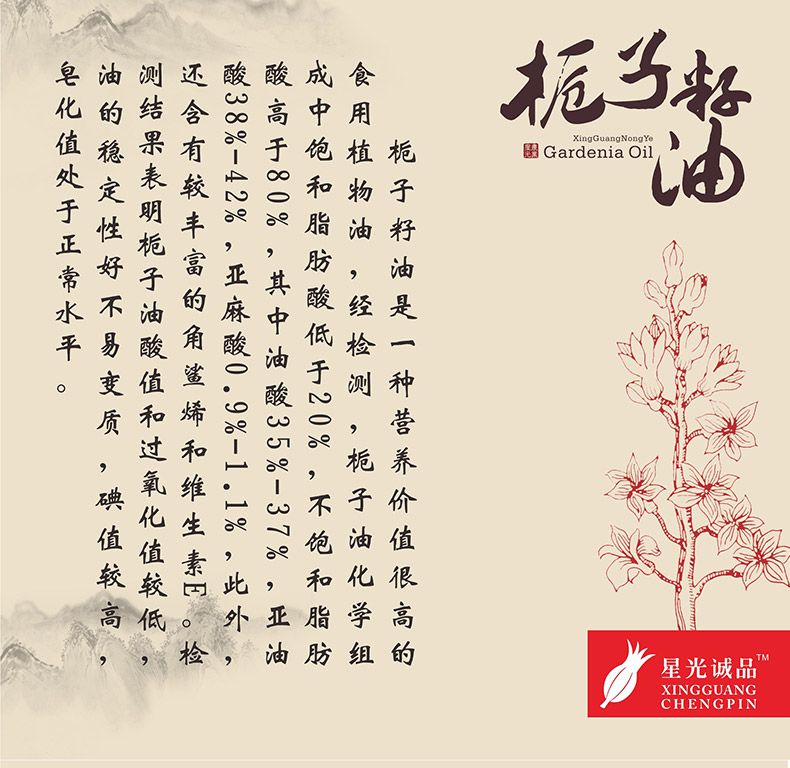 栀子籽油
XingGuangNongYe
Gardenia Oil
栀子籽油是一种营养价值很高的
食用植物油，经检测，栀子油化学组
成中饱和脂肪酸低于20%，不饱和脂肪
酸高于80%，其中油酸35%-37%，亚油
酸38%-42%，亚麻酸0.9%-1.1%，此外，
还含有较丰富的角鲨烯和维生素E。检
测结果表明栀子油酸值和过氧化值较低，
油的稳定性好不易变质，碘值较高，
皂化值处于正常水平。
星光诚品™
XINGGUANG
CHENGPIN